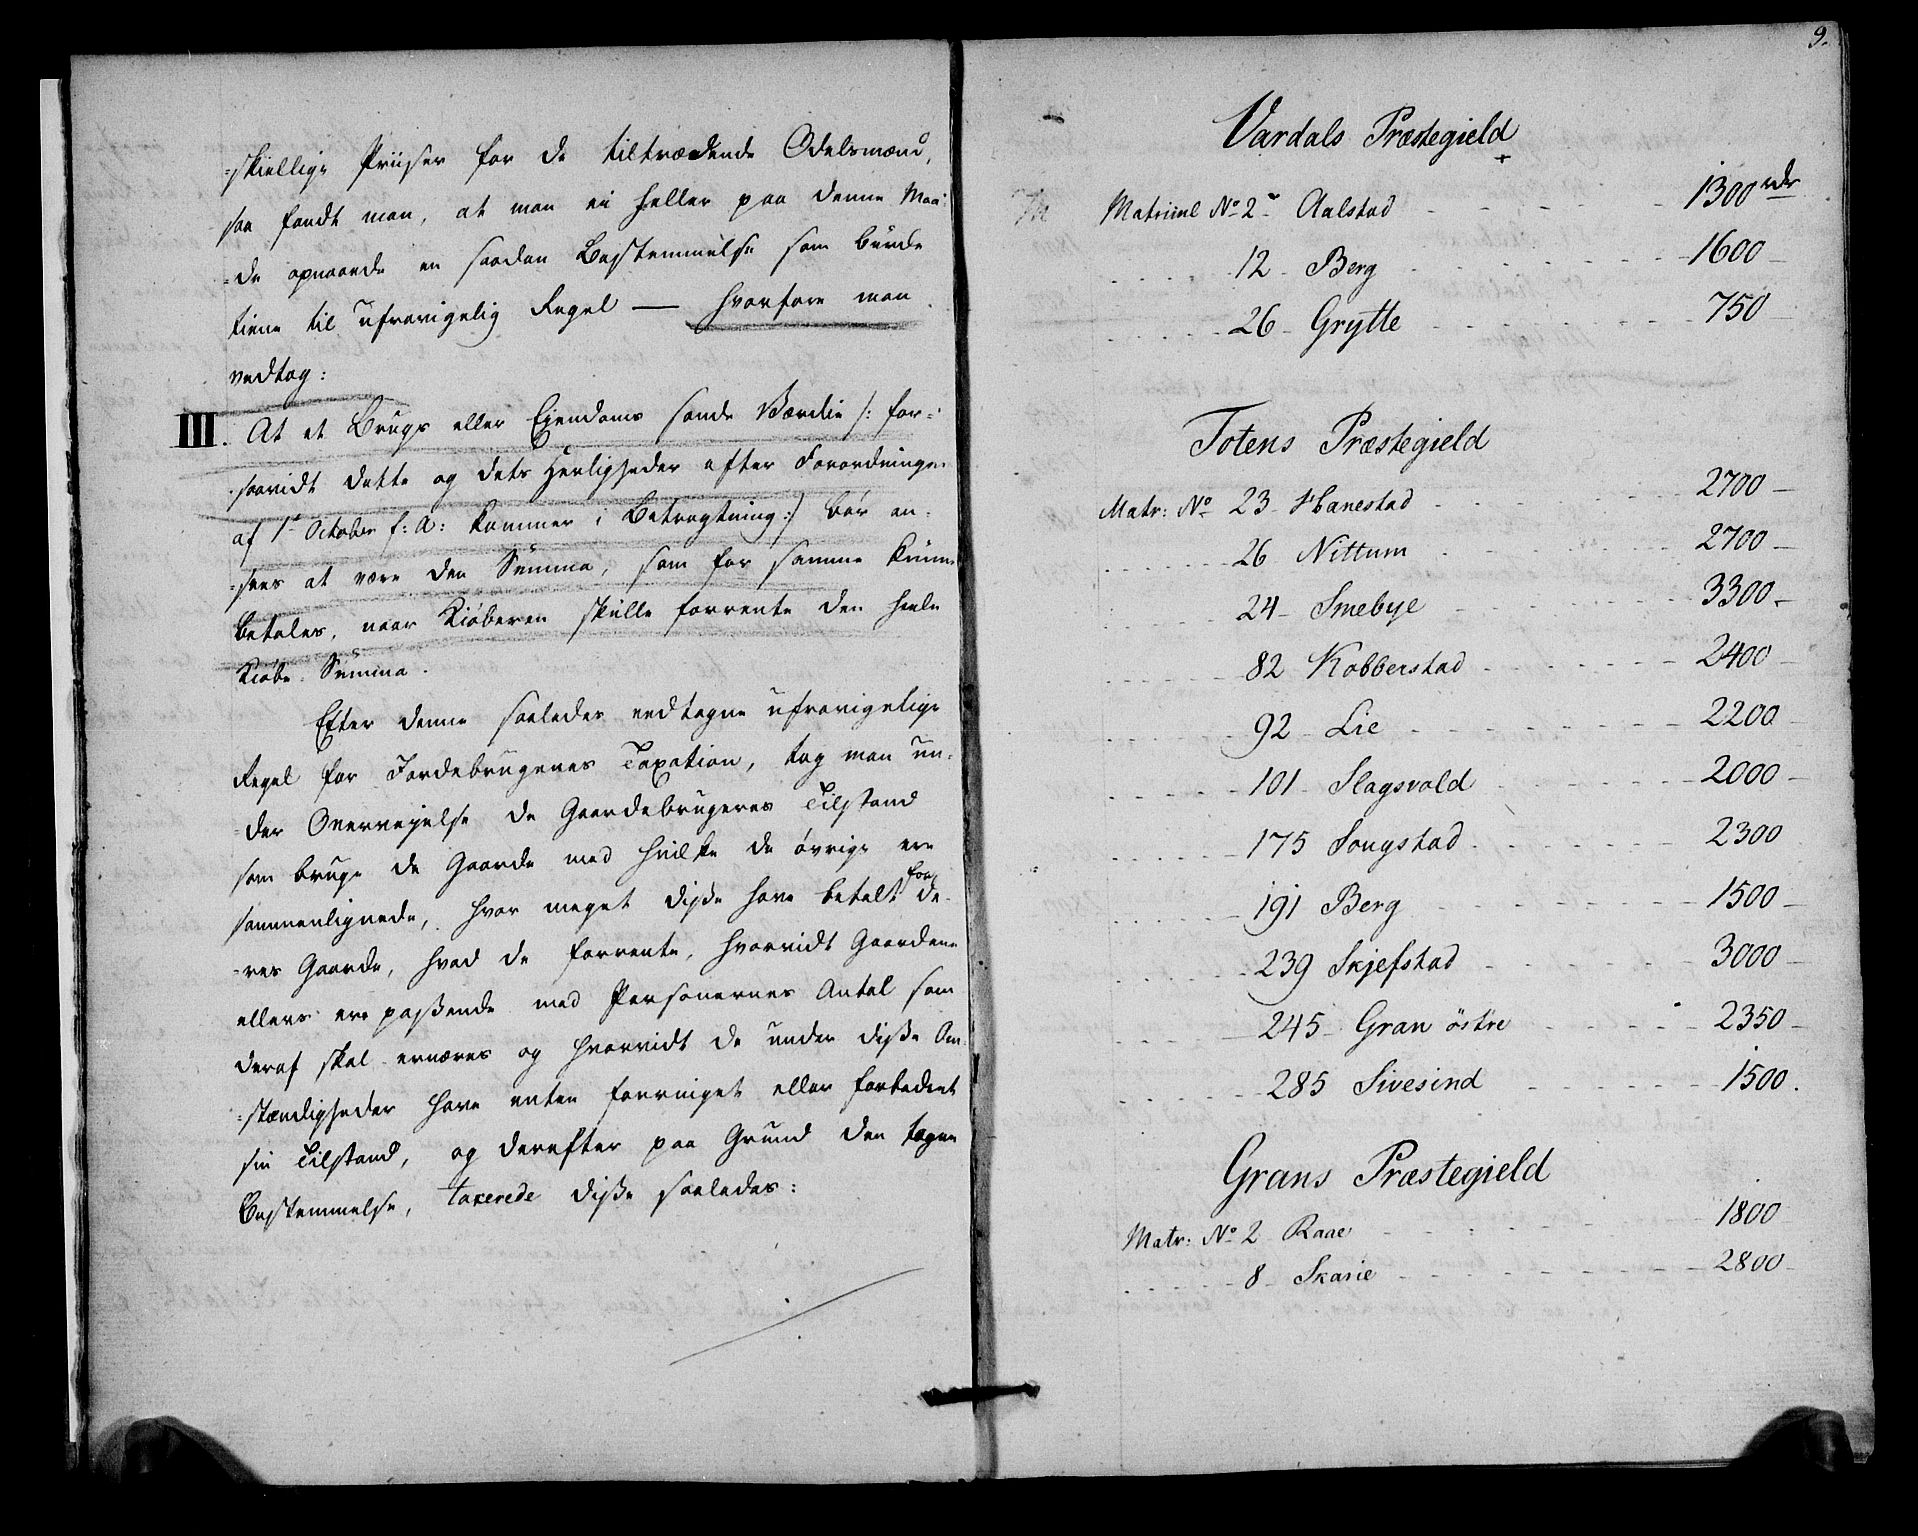 =skiellige Priiser for de tiltrædende Odelsmænd,
saa fandt man, at man ei heller paa denne Maa=
=de opnaaede en saadan Bestemmelse som burde
tiene til ufravigelig Regel — hvorfore man
vedtog:
III. At et Brugs eller Ejendoms sande Værdie /: for=
saavidt dette og dets Herligheder efter Forordningen
af 1ste October f: A: kommer i Betragtning :/ bør an=
=sees at være den Summa, som for samme kunne
betales, naar Kiøberen skulle forrente den heele
Kiøbe Summa.
Efter denne saaledes vedtagne ufravigelige
Regel for Jordebrugenes Taxation, tog man un=
=der Overvejelse de Gaardebrugeres Tilstand
som bruge de Gaarde med hvilke de øvrige ere
sammenlignede, hvor meget disse have betalt for de=
=res Gaarde, hvad de forrente, hvorvidt Gaardene
ellers ere passende med Personernes Antal som
deraf skal ernæres og hvorvidt de under disse Om=
=stændigheder have enten forringet eller forbedret
sin Tilstand, og derefter paa Grund den tagne
Bestemmelse, taxerede disse saaledes:
9.
Vardals Præstegield
Matriiul No 2 Aalstad 1300 rdr
12 Berg 1600
26 Grytte 750
Totens Præstegield
Matr: No 23 Hanestad 2700
26 Nittum 2700
24 Smebye 3300
82 Kobberstad 2400
92 Lie 2200
101 Slagsvold 2000
175 Sougstad 2300
191 Berg 1500
239 Skjefstad 3000
245 Gran östre 2350
285 Sivesind 1500.
Grans Præstegield
Matr: No 2 Raae 1800
8 Skarie 2800